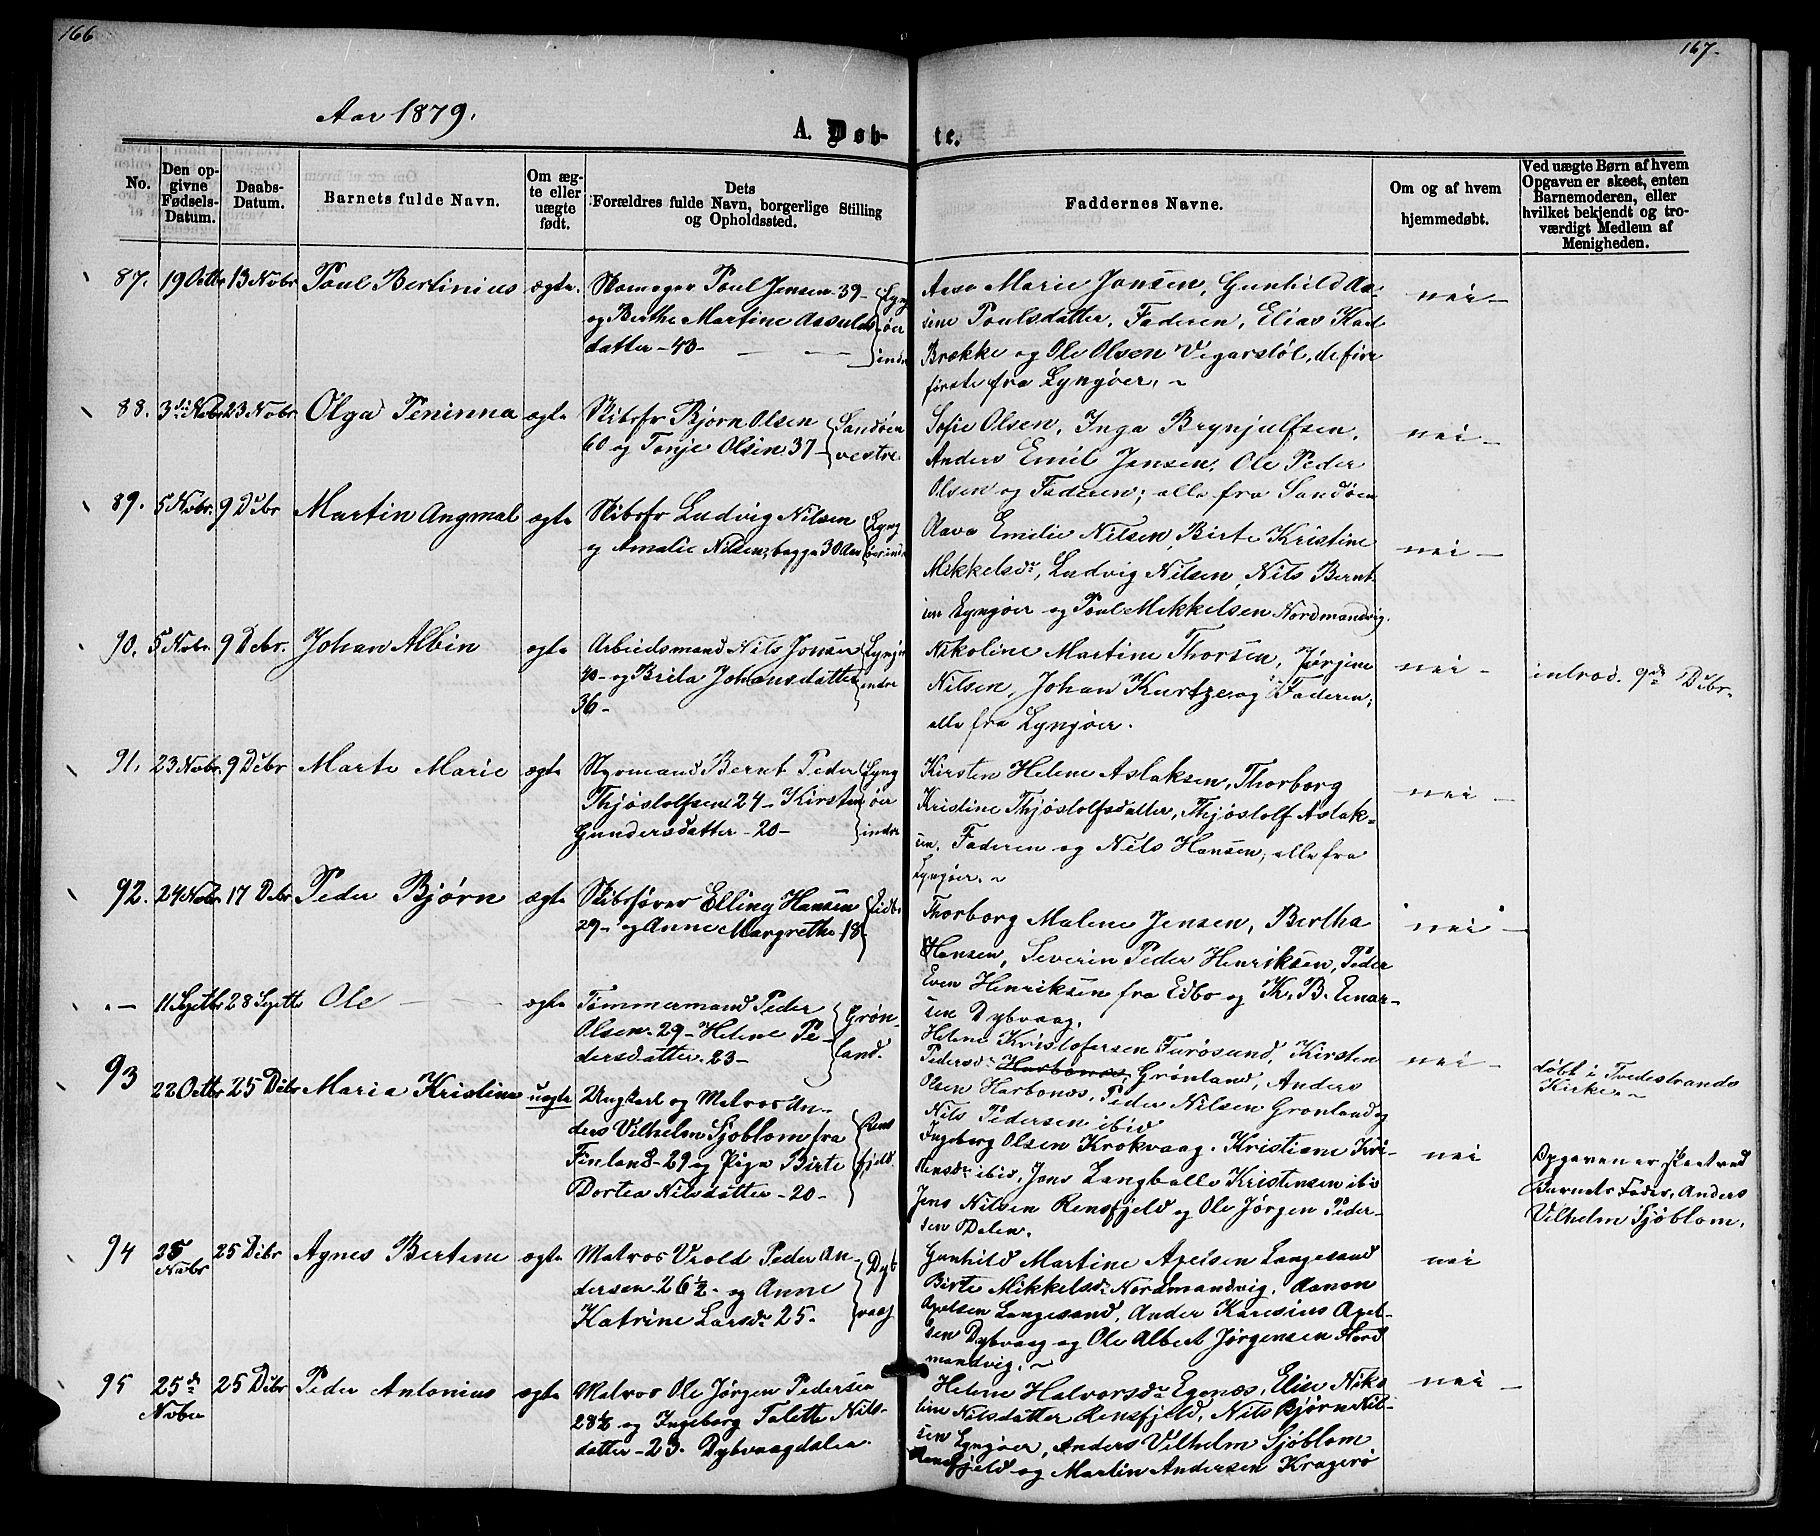 166
167.
Aar 1879.
A. Døb-
te.
No.
Den op-
givne
Fødsels-
Datum.
Daabs-
Datum.
Barnets fulde Navn.
Om æg-
te eller
uægte
født.
Dets
Forældres fulde Navn, borgerlige Stilling
og Opholdssted.
Faddernes Navne.
Om og af hvem
hjemmedøbt.
Ved uægte Børn af hvem
Opgaven er skeet, enten
Barnemoderen, eller
hvilket bekjendt og tro-
værdigt Medlem af
Menigheden.
87. 19 Octbr 13 Nobr Poul Bertinius ægte.
Skomager Poul Jensen 39-
og Berthe Martine Aasulds
datter -43-
Lyng
øer
indre
Aase Marie Jansen, Gunhild Aa-
sine Poulsdatter, Faderen, Elias
Brække og Ole Olsen Vegarstøl, de fire
første fra Lyngøer. ~
nei -
88. 3die Nobr 23 Nobr Olga Peninna ægte
Skibsfr Bjørn Olsen
60 og Tonje Olsen 37-
Sandøen
vestre
Sofie Olsen, Inga Brynjulfsen,
Anders Emil Jensen, Ole Peder
Olsen og Faderen; alle fra Sandøen
nei -
89. 5 Nobr. 9 Debr Martin Angmal ægte
Skibsfr Ludvig Nilsen
og Amalie Nilsen, begge 30 Aar
Lyng
øer indre
Olava Emilie Nilsen, Birte Kristine
Mikkelsdr, Ludvig Nilsen, Nils Bernt
sen Lyngøer og Poul Mikkelsen Nordmandvig.
nei -
90. 5 Nobr. 9 Debr. Johan Albin ægte
Arbeidsmand Nils Jonsen
40- og Brita Johansdatter
36-
Lyngør
indre
Nikoline Martine Thorsen, Jørgine
Nilsen, Johan Kurtze og Faderen;
alle fra Lyngøer.
nei -
introd. 9de Debr.
91. 23 Nobr. 9 Debr Marte Marie ægte
Styrmand Bernt Peder
Thjøstolfsen 24- Kirsten
Gundersdatter -20-
Lyng
øer
indre
Kirsten Helene Aslaksen, Thorborg
Kristine Thjøstolfsdatter, Thjøstolf Aslak-
sen, Faderen og Nils Hansen, alle fra
Lyngøer. ~
nei -
92. 24 Nobr 17 Debr Peder Bjørn ægte
Skibsfører Elling Hansen
29- og Anne Margrethe 18-
Eidbo
Thorborg Malene Jensen, Bertha
Hansen, Severin Peder Henriksen, Peder
Even Henriksen fra Eidbo og K. B. Einar-
sen Dybvaag.
nei -
- 11 Septbr 28 Septbr Ole - - ægte
Tømmermand Peder
Olsen 29- Helene Pe-
dersdatter. 23-
Grøn-
land.
Helene Kristofersen Furøsund, Kirsten
Pedersdr Harbonæs, Grønland, Anders
Olsen Harbonæs, Peder Nilsen Grønland og
Nils Pedersen ibid
nei -
døbt i Tvedestrands
Kirke. ~
93 22 Octbr 25 Debr Maria Kristine uægte
Ungkarl og Matros An-
ders Vilhelm Sjøblom fra
Finland-29 og Pige Birte
Dortea Nilsdatter -20-
Rens
fjeld
Ingeborg Olsen Krokvaag. Kristiane Kri-
stensdr ibid, Jens Langballe Kristensen ibid
Jens Nilsen Rensfjeld og Ole Jørgen Peder-
sen Dalen.
nei
Opgaven er skeet ved
Barnets Fader, Anders
Vilhelm Sjøblom.
94 25 Nobr 25 Debr Agnes Bertine ægte
Matros Vrold Peder An-
dersen 26½- og Anne
Katrine Larsdr 25-
Dyb
vaag
Gunhild Martine Apelsen Langesand
Birte Mikkelsdr Nordmandvig, Aanon
Apelsen Langesand, Ander Karesius Apel-
sen Dybvaag og Ole Albert Jørgensen Nord
mandvig. ~
nei
95 25de Nobr 25 Debr Peder Antonius ægte
Matros Ole Jørgen Pedersen
28½ og Ingeborg Talette Nils-
datter -23. Dybvaagdalen.
Helene Halvorsdr Egenæs, Elise Niko
line Nilsdatter Rensfjeld, Nils Bjørn Nil-
sen Lyngøer, Anders Vilhelm Sjøblom
Rensfjeld og Martin Andersen Kragerø
nei -